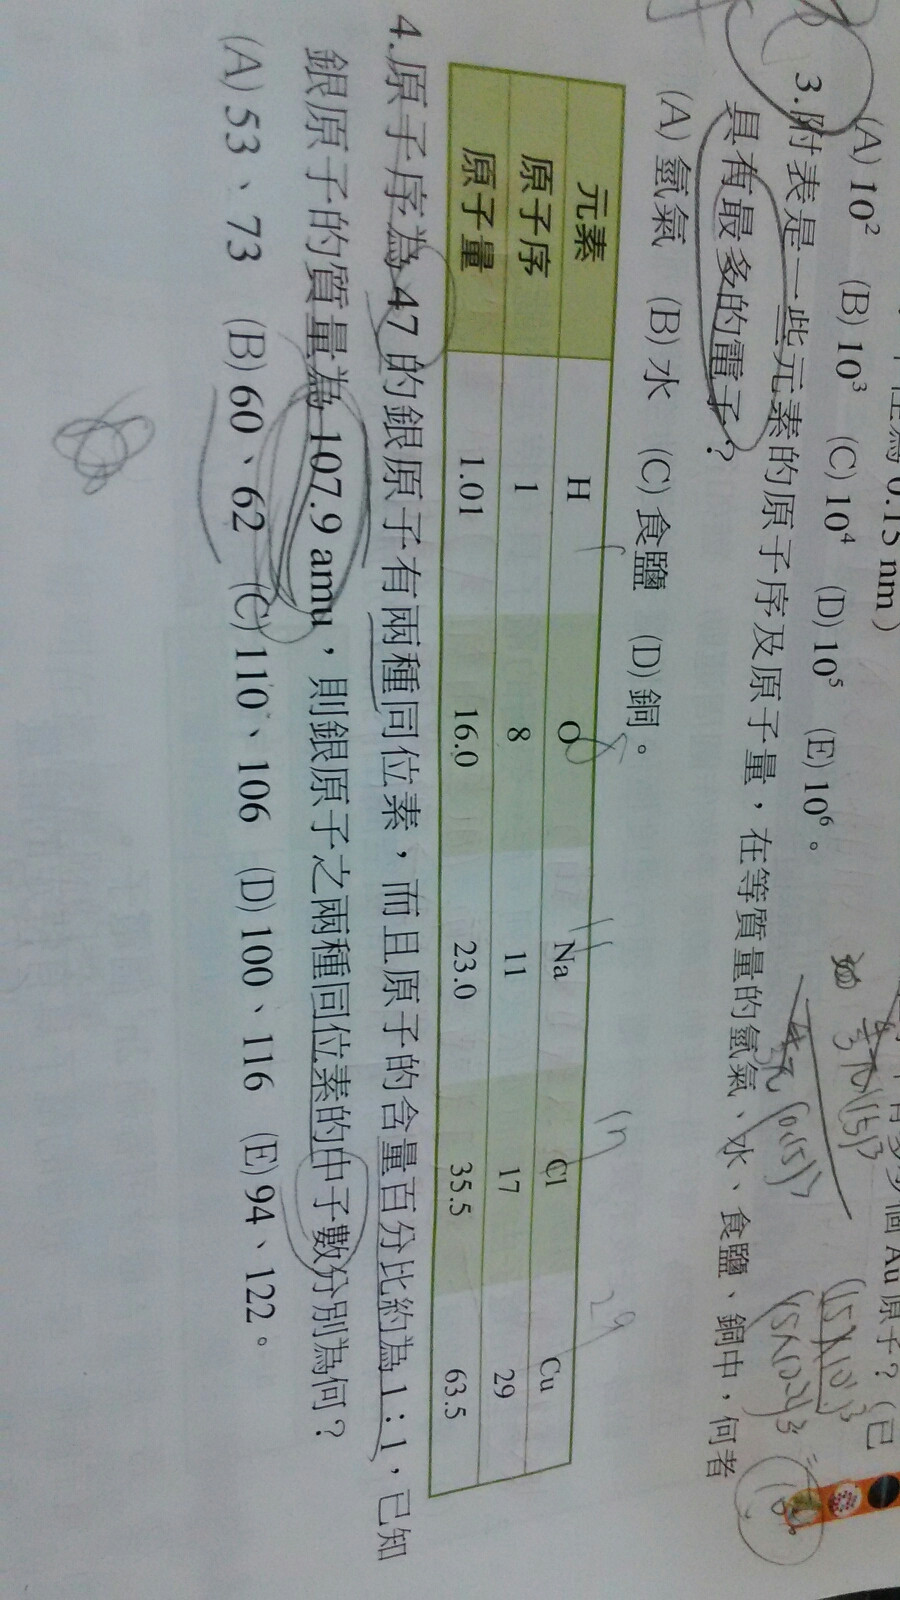 徑為 0.15 nm）
個 Au 原子？（已
(A) 10² (B) 10³ (C) 10⁴ (D) 10⁵ (E) 10⁶。
3.附表是一些元素的原子序及原子量，在等質量的氫氣、水、食鹽、銅中，何者
具有最多的電子？
(A) 氫氣 (B) 水 (C) 食鹽 (D) 銅。
元素 H O Na Cl Cu
原子序 1 8 11 17 29
原子量 1.01 16.0 23.0 35.5 63.5
8
17
29
4.原子序為 47 的銀原子有兩種同位素，而且原子的含量百分比約為 1：1，已知
銀原子的質量為 107.9 amu，則銀原子之兩種同位素的中子數分別為何？
(A) 53、73 (B) 60、62 (C) 110、106 (D) 100、116 (E) 94、122。